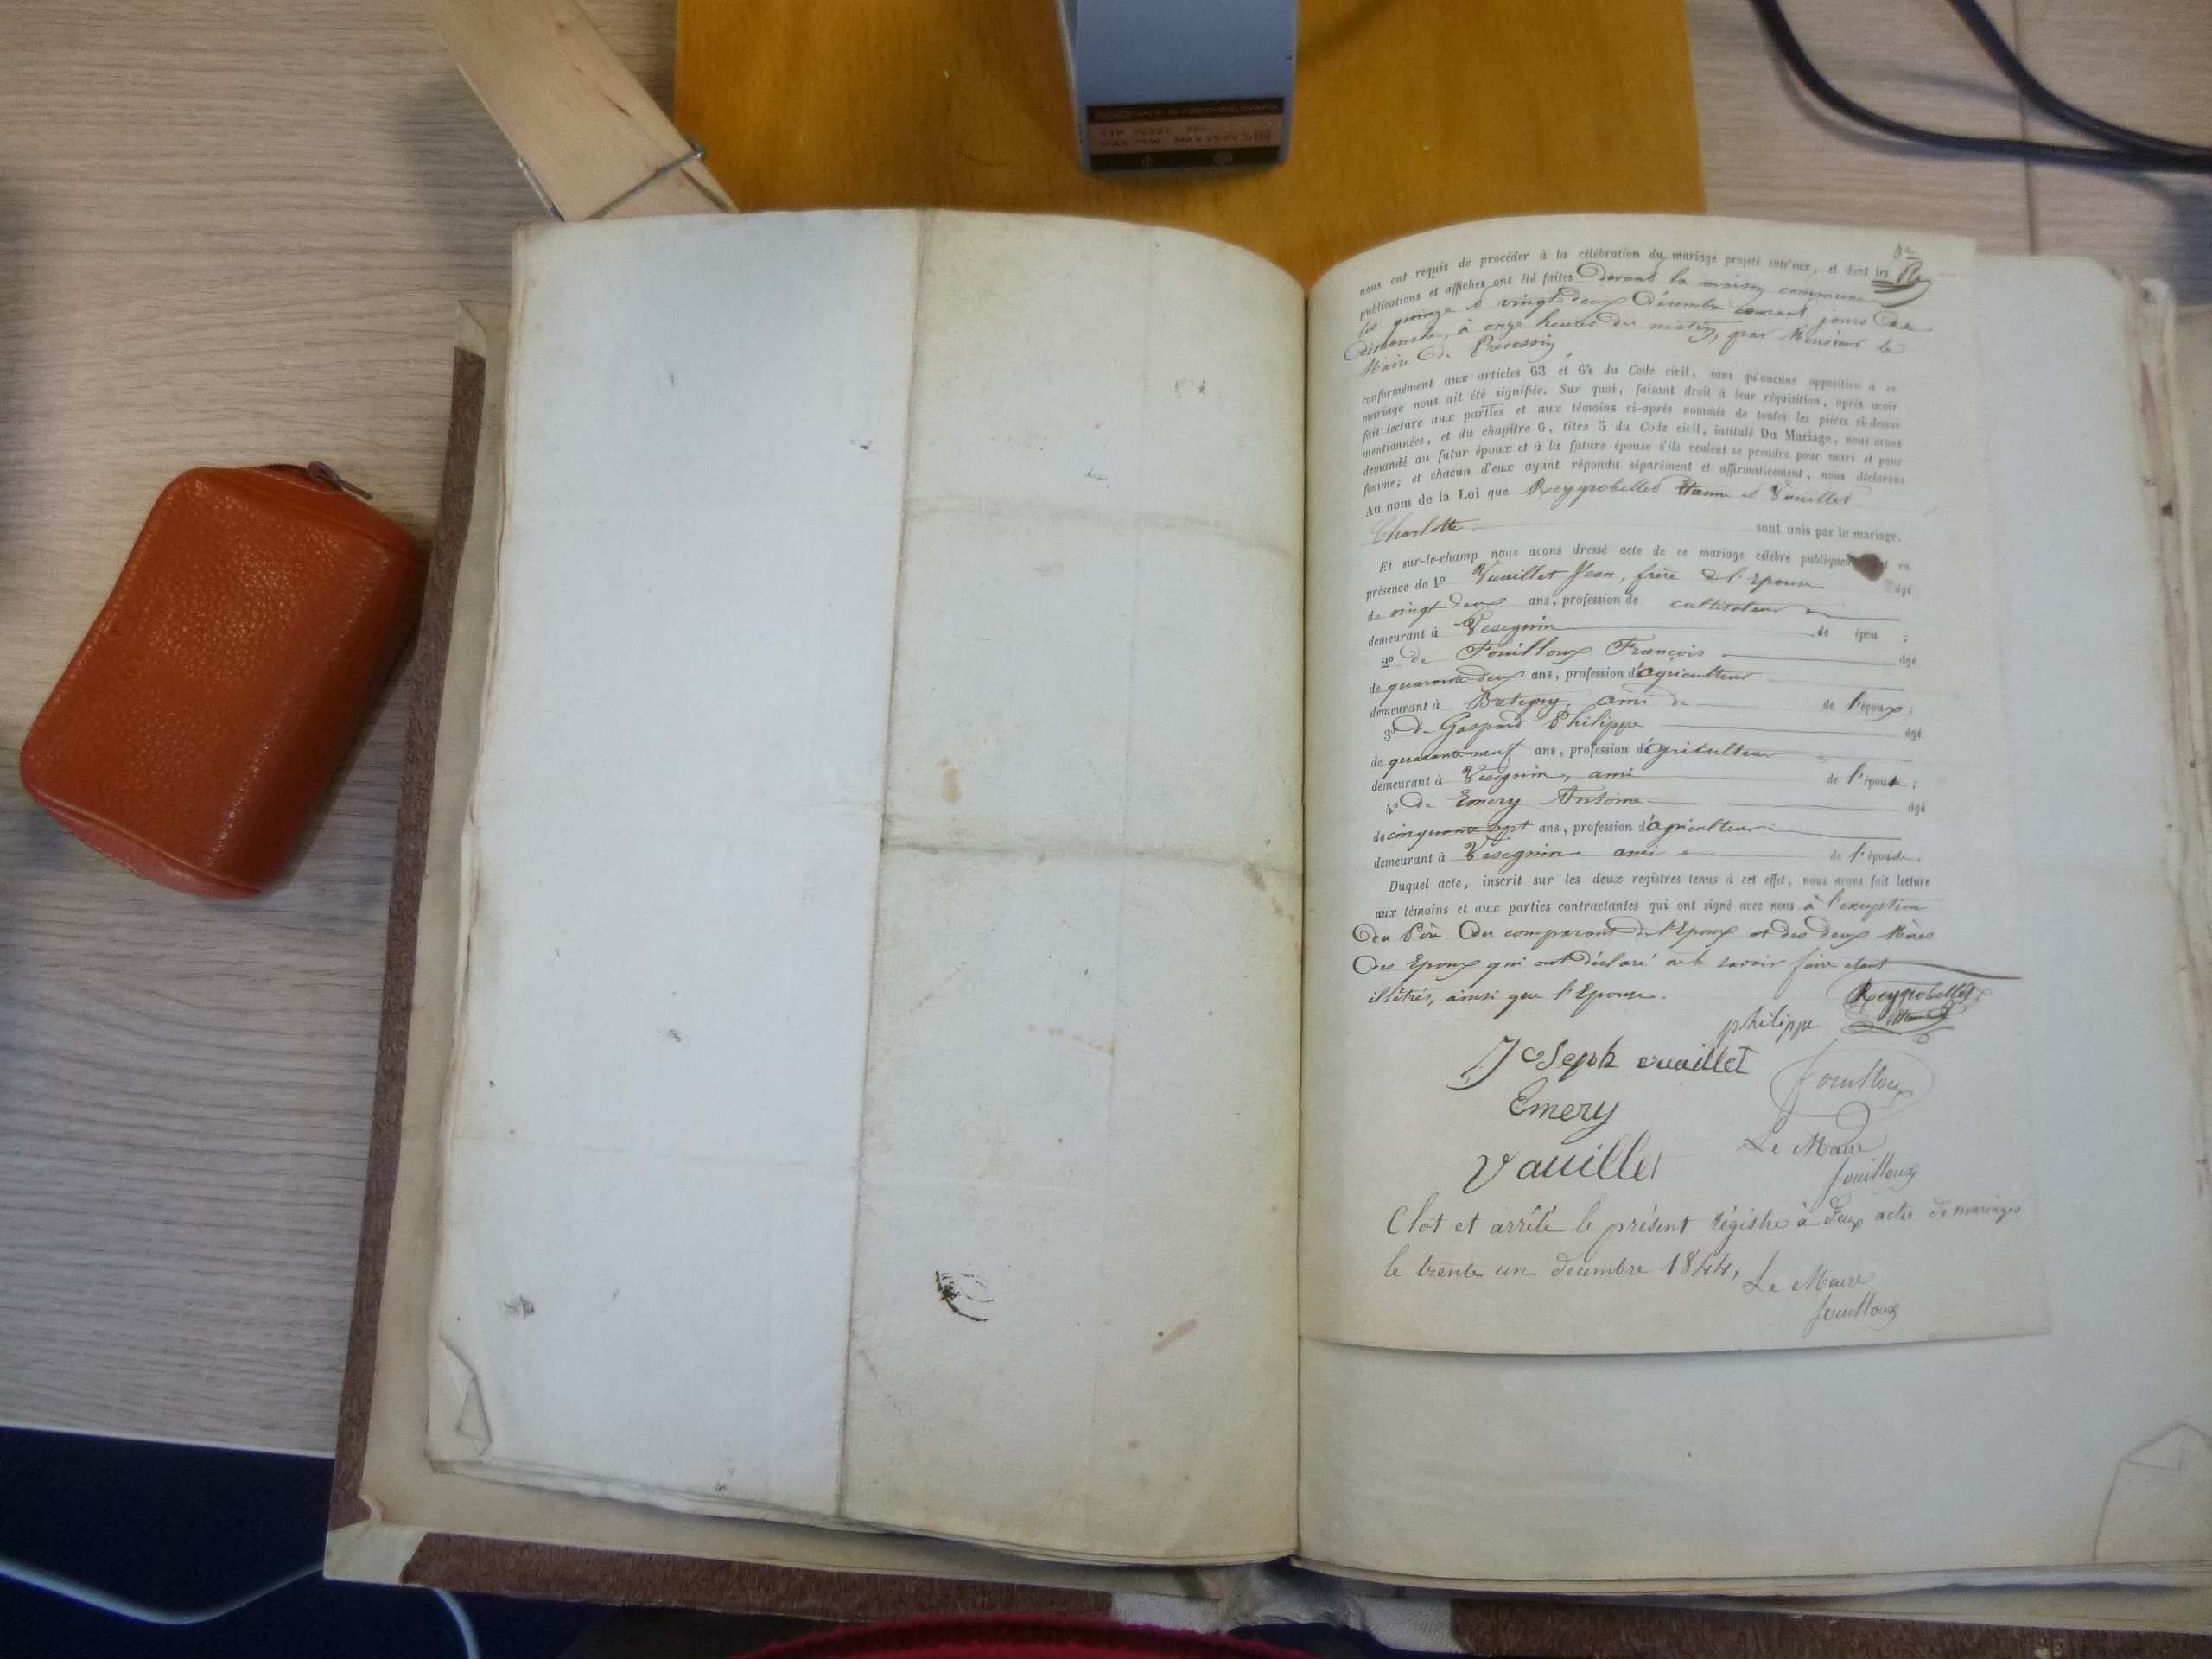 MADE IN CZECHOSLOVAKIA
3e
nous ont requis de procéder à la célébration du mariage projeté entr'eux, et dont les
publications et affiches ont été faites devant la maison commune
les quinze & vingt-deux Décembre courant jours de
dimanche, à onze heures du matin, par Monsieur le
Maire de Prevessin
conformément aux articles 63 et 64 du Code civil, sans qu'aucune opposition à ce
mariage nous ait été signifiée. Sur quoi, faisant droit à leur réquisition, après avoir
fait lecture aux parties et aux témoins ci-après nommés de toutes les pièces ci-dessus
mentionnées, et du chapitre 6, titre 5 du Code civil, intitulé Du Mariage, nous avons
demandé au futur époux et à la future épouse s'ils veulent se prendre pour mari et pour
femme; et chacun d'eux ayant répondu séparément et affirmativement, nous déclarons
Au nom de la Loi que Reygrobellet Etienne et Vuaillet
Charlotte sont unis par le mariage.
Et sur-le-champ nous avons dressé acte de ce mariage célébré publiquement en
présence de 1º Vuaillet Jean, frère de l'Epouse âgé
de vingt deux ans, profession de cultivateur
demeurant à Vesegnin de épou ;
2º de Fouilloux François âgé
de quarante deux ans, profession d'agriculteur
demeurant à Bretigny, ami de de l'époux ;
3º de Gaspard Philippe âgé
de quarante neuf ans, profession d'agriculteur
demeurant à Vesegnin, ami de l'épouse ;
4º de Emery Antoine âgé
de cinquante sept ans, profession d'agriculteur
demeurant à Vesegnin ami de l'épouse
Duquel acte, inscrit sur les deux registres tenus à cet effet, nous avons fait lecture
aux témoins et aux parties contractantes qui ont signé avec nous à l'exception
du Père du comparant de l'Epoux et des deux Mères
des Epoux qui ont déclaré ne le savoir faire étant
illétrés, ainsi que l'Epouse.
Reygrobellet
philippe Etienne
Joseph vuaillet
fouilloux
Emery
Le Maire
Vuaillet
fouilloux
Clot et arrêté le présent régistre à deux actes de mariages
le trente un décembre 1844,
Le Maire
fouilloux